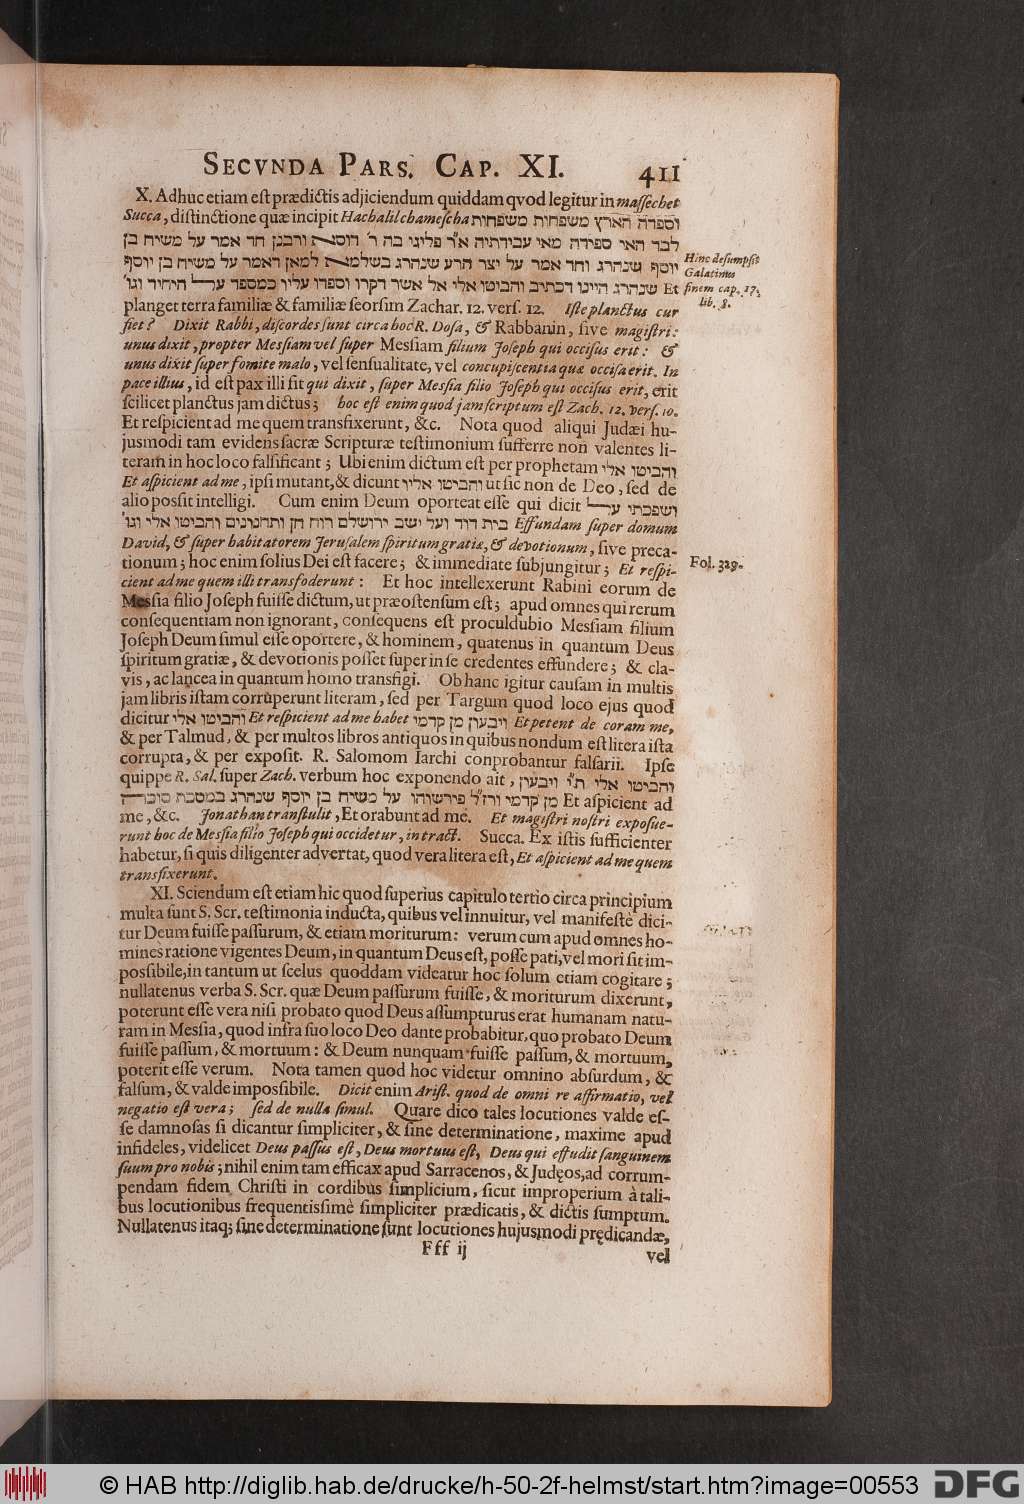 SECVNDA PARS. CAP. XI. 411
X. Adhuc etiam est prædictis adjiciendum quiddam qvod legitur in massechet
Succa, distinctione quæ incipit Hachalil chamescha וספדה הארץ משפחות משפחות
לבד האי ספידה מאי עבידתיה א״ר פליגי בה ר׳ דוסא ורבנן חד אמר על משיח בן
יוסף שנהרג וחד אמר על יצר הרע שנהרג בשלמא למאן דאמר על משיח בן יוסף
שנהרג היינו דכתיב והביטו אלי אל אשר דקרו וספדו עליו כמספד על היחיד וגו׳ Et
Hinc desumpsit
Galatinus
finem cap. 17.
lib. 8.
planget terra familiæ & familiæ seorsim Zachar. 12. vers. 12. Iste planctus cur
fiet? Dixit Rabbi, discordes sunt circa hoc R. Dosa, & Rabbanin, sive magistri:
unus dixit, propter Messiam vel super Messiam filium Joseph qui occisus erit: &
unus dixit super fomite malo, vel sensualitate, vel concupiscentia quæ occisa erit. In
pace illius, id est pax illi sit qui dixit, super Messia filio Joseph qui occisus erit, erit
scilicet planctus jam dictus; hoc est enim quod jam scriptum est Zach. 12. vers. 10.
Et respicient ad me quem transfixerunt, &c. Nota quod aliqui Judæi hu-
jusmodi tam evidens sacræ Scripturæ testimonium sufferre non valentes li-
teram in hoc loco falsificant; Ubi enim dictum est per prophetam והביטו אלי
Et aspicient ad me, ipsi mutant, & dicunt והביטו אליו ut sic non de Deo, sed de
alio possit intelligi. Cum enim Deum oporteat esse qui dicit ושפכתי על
בית דוד ועל ישב ירושלם רוח חן ותחנונים והביטו אלי וגו׳ Effundam super domum
David, & super habitatorem Jerusalem spiritum gratiæ, & devotionum, sive preca-
tionum; hoc enim solius Dei est facere; & immediate subjungitur; Et respi-
Fol. 329.
cient ad me quem illi transfoderunt: Et hoc intellexerunt Rabini eorum de
Messia filio Joseph fuisse dictum, ut præostensum est; apud omnes qui rerum
consequentiam non ignorant, consequens est proculdubio Messiam filium
Joseph Deum simul esse oportere, & hominem, quatenus in quantum Deus
spiritum gratiæ, & devotionis posset super in se credentes effundere; & cla-
vis, ac lancea in quantum homo transfigi. Ob hanc igitur causam in multis
jam libris istam corrũperunt literam, sed per Targum quod loco ejus quod
dicitur והביטו אלי Et respicient ad me habet ויבעון מן קדמי Et petent de coram me,
& per Talmud, & per multos libros antiquos in quibus nondum est litera ista
corrupta, & per exposit. R. Salomom Iarchi conprobantur falsarii. Ipse
quippe R. Sal. super Zach. verbum hoc exponendo ait, והביטו אלי ת״י ויבעון
מן קדמי ורז״ל פירשוהו על משיח בן יוסף שנהרג במסכת סוכה Et aspicient ad
me, &c. Jonathan transtulit, Et orabunt ad me. Et magistri nostri exposue-
runt hoc de Messia filio Joseph qui occidetur, in tract. Succa. Ex istis sufficienter
habetur, si quis diligenter advertat, quod vera litera est, Et aspicient ad me quem
transfixerunt.
XI. Sciendum est etiam hic quod superius capitulo tertio circa principium
multa sunt S. Scr. testimonia inducta, quibus vel innuitur, vel manifestè dici-
tur Deum fuisse passurum, & etiam moriturum: verum cum apud omnes ho-
minès ratione vigentes Deum, in quantum Deus est, posse pati, vel mori sit im-
possibile, in tantum ut scelus quoddam videatur hoc solum etiam cogitare;
nullatenus verba S. Scr. quæ Deum passurum fuisse, & moriturum dixerunt,
poterunt esse vera nisi probato quod Deus assumpturus erat humanam natu-
ram in Messia, quod infra suo loco Deo dante probabitur, quo probato Deum
fuisse passum, & mortuum: & Deum nunquam fuisse passum, & mortuum,
poterit esse verum. Nota tamen quod hoc videtur omnino absurdum, &
falsum, & valde impossibile. Dicit enim Arist. quod de omni re affirmatio, vel
negatio est vera; sed de nulla simul. Quare dico tales locutiones valde es-
se damnosas si dicantur simpliciter, & sine determinatione, maxime apud
infideles, videlicet Deus passus est, Deus mortuus est, Deus qui effudit sanguinem
suum pro nobis; nihil enim tam efficax apud Sarracenos, & Judęos, ad corrum-
pendam fidem Christi in cordibus simplicium, sicut improperium à tali-
bus locutionibus frequentissimè simpliciter prædicatis, & dictis sumptum.
Nullatenus itaq; sine determinatione sunt locutiones hujusmodi prędicandæ,
Fff ij
vel
© HAB http://diglib.hab.de/drucke/h-50-2f-helmst/start.htm?image=00553
DFG